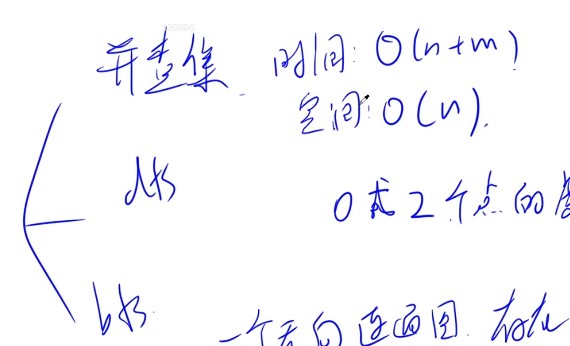 并查集 时间: O(n+m)
空间: O(n).
dfs
0 或 2 个点的
bfs.
一个无向连通图. 存在